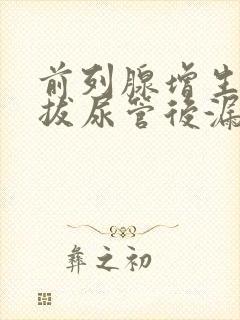 前列腺增生
拔尿管後漏
彝之初